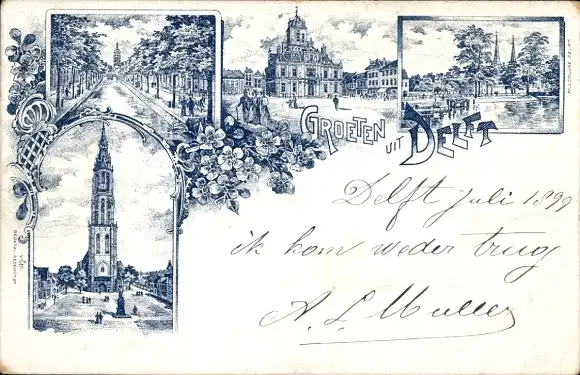 GROETEN UIT DELFT
Delft Juli 1899
ik kom weder trug
A. L. Muller